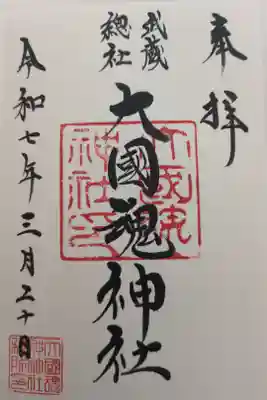 奉拝
武蔵
總社
大國魂神社
令和七年三月二十日
大國魂
神社印